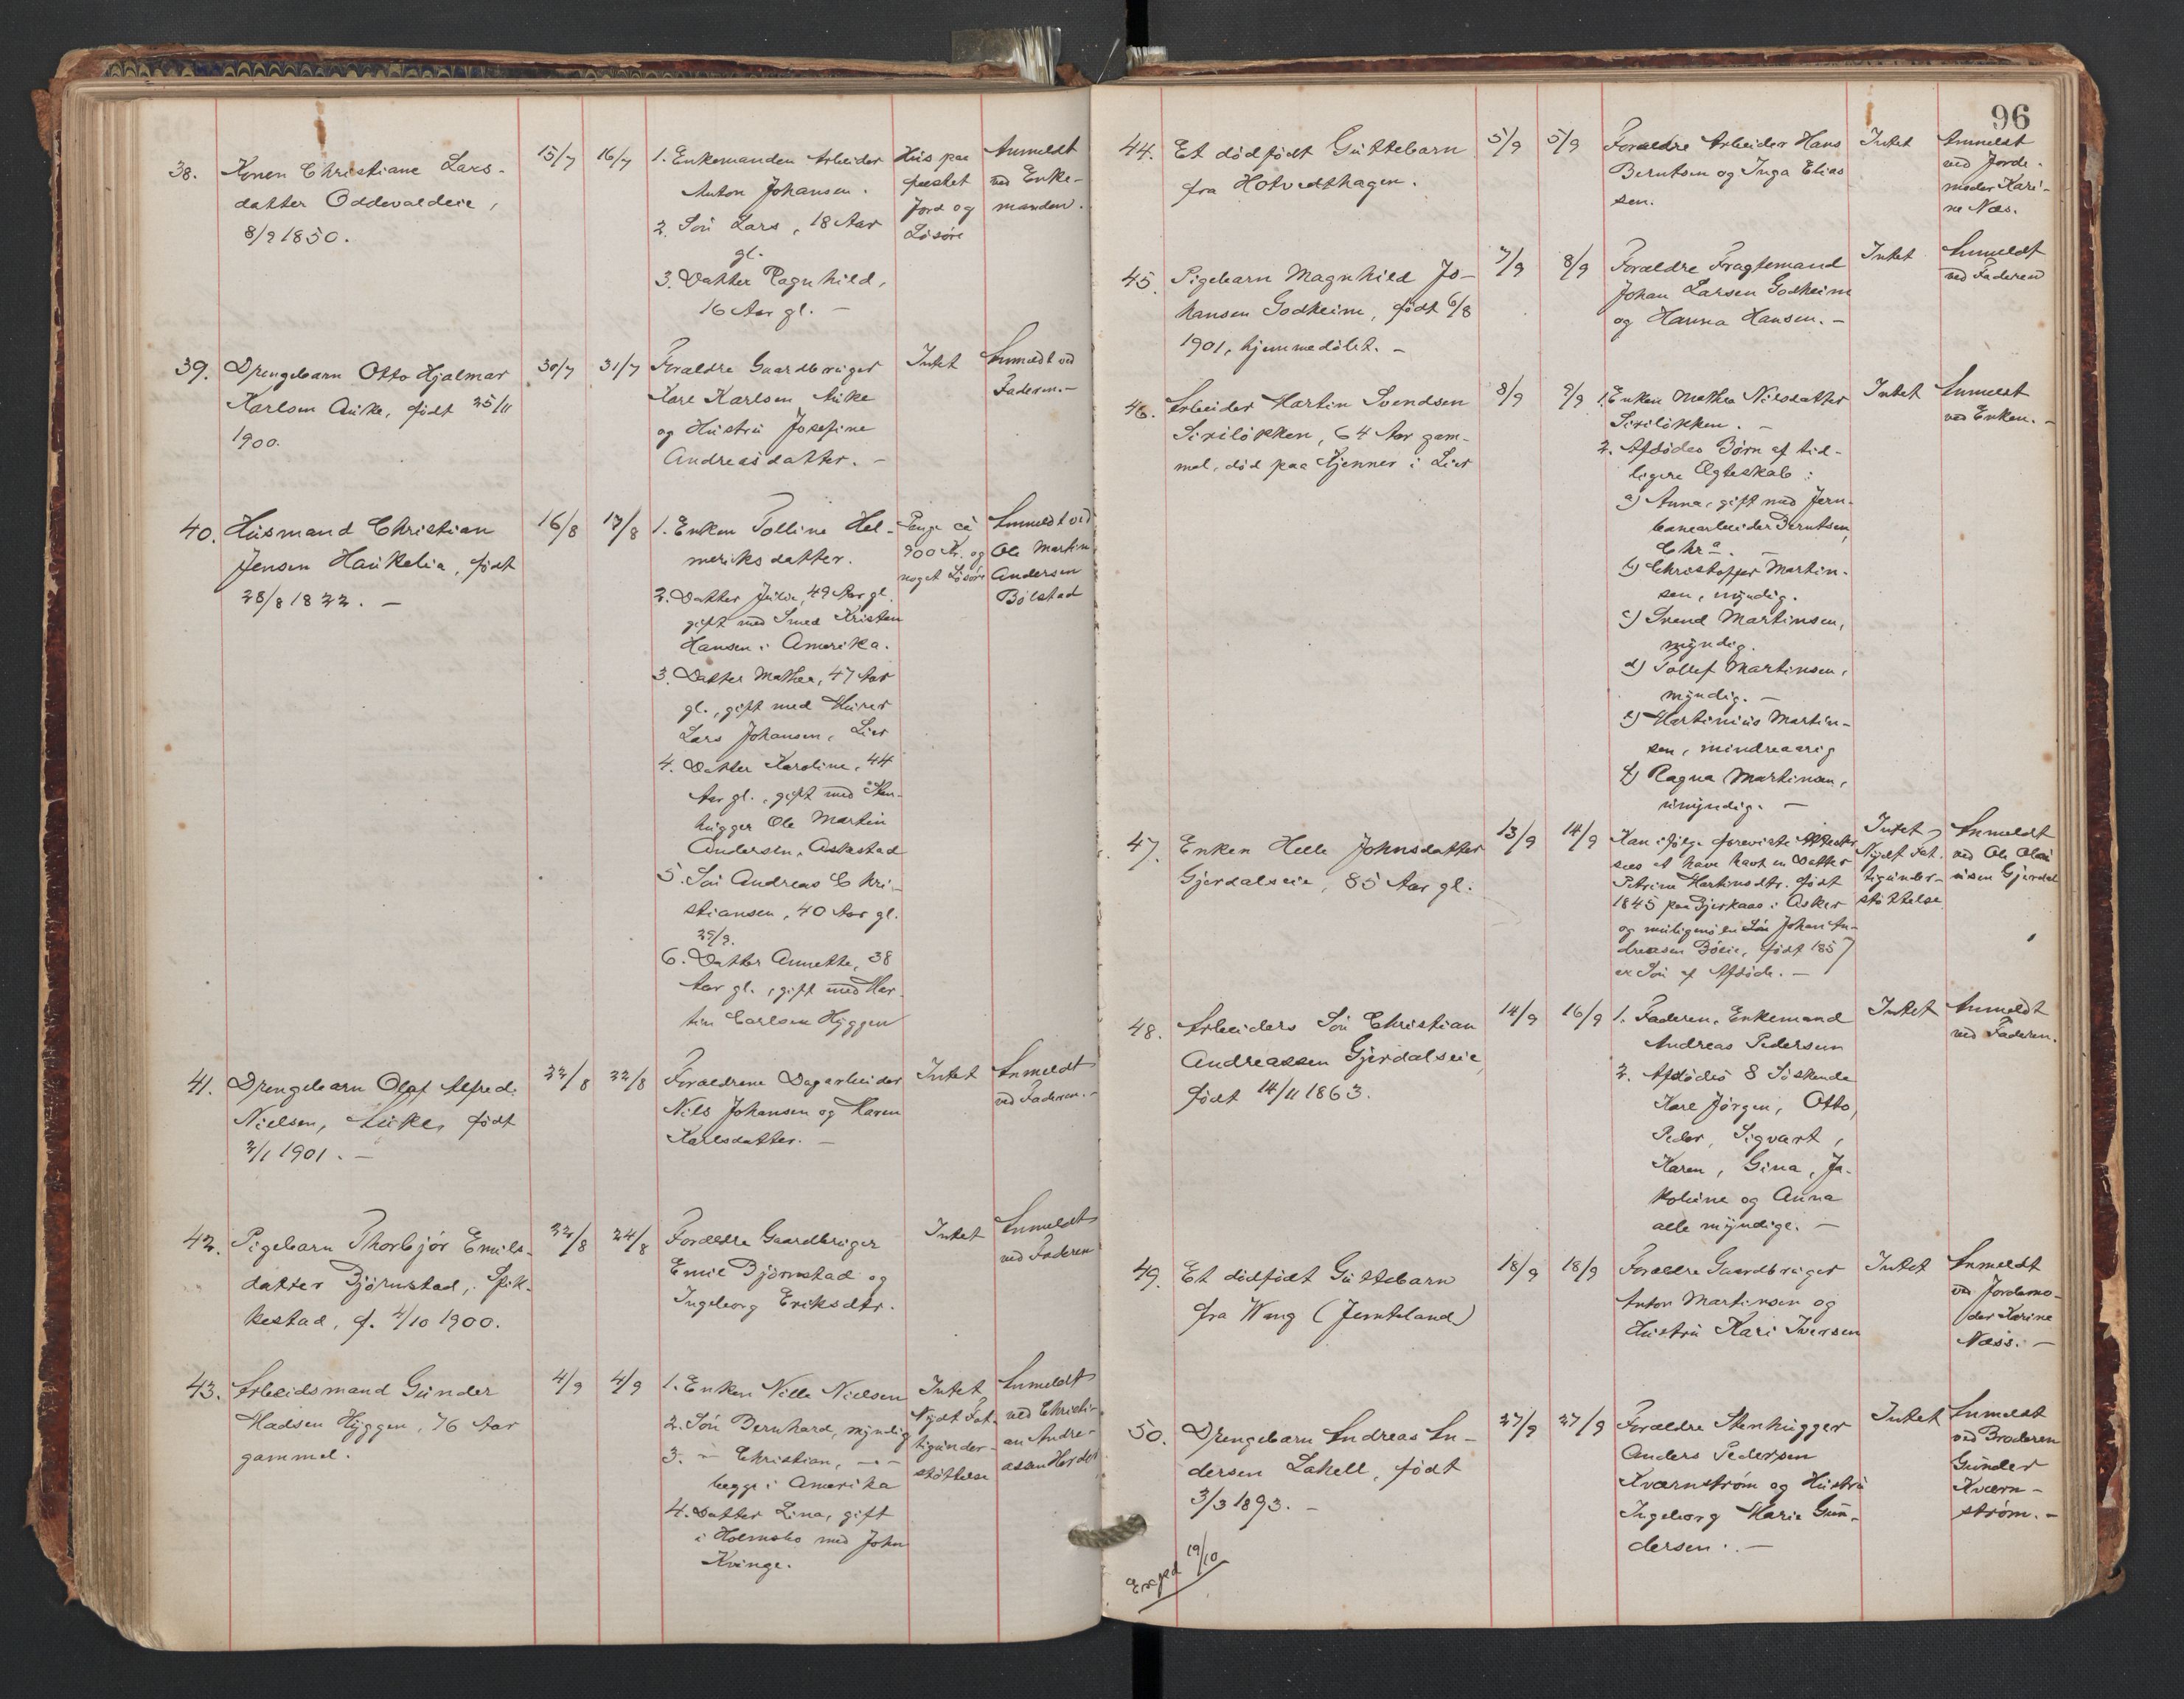 38.
Konen Christiane Lars-
datter Oddevaldeie,
8/9 1850.
15/7
16/7
1. Enkemanden Arbeider
Anton Johansen.
2. Sön Lars, 18 Aar
gl.
3. Datter Ragnhild,
16 Aar gl. —
Hus paa
fæstet
Jord og
Lösöre
Anmeldt
ved Enke-
manden.
39.
Drengebarn Otto Hjalmar
Karlsen Auke, födt 25/11
1900.
30/7
31/7
Forældre Gaardbruger
Karl Karlsen Auke
og Hustru Josefine
Andreasdatter. —
Intet
Anmeldt ved
Faderen. —
40.
Husmand Christian
Jensen Haukelia, födt
28/8 1822. —
16/8
17/8
1. Enken Tolline Hel-
meriksdatter.
2. Datter Julie, 49 Aar gl.
gift med Smed Kristen
Hansen i Amerika.
3. Datter Mathea, 47 Aar
gl., gift med Murer
Lars Johansen, Lier
4. Datter Karoline, 44
Aar gl., gift med Sten-
hugger Ole Martin
Andersen, Askestad
5. Sön Andreas Chri-
stiansen, 40 Aar gl.
29/9.
6. Datter Annette, 38
Aar gl., gift med Mar-
tin Carlsen Hyggen
Penge ca
900 Kr. og
noget Lösöre
Anmeldt ved
Ole Martin
Andersen
Bölstad
41.
Drengebarn Olaf Alfred
Nielsen, Auke, födt
2/1 1901. —
22/8
22/8
Forældrene Dagarbeider
Nils Johansen og Karen
Karlsdatter. —
Intet
Anmeldt
ved Faderen. —
42.
Pigebarn Thorbjör Emils-
datter Björnstad, Spik-
kestad, f. 4/10 1900.
22/8
24/8
Forældre Gaardbruger
Emil Björnstad og
Ingeborg Eriksdtr.
Intet
Anmeldt
ved Faderen
43.
Arbeidsmand Gunder
Madsen Hyggen, 76 Aar
gammel.
4/9
4/9
1. Enken Nille Nielsen
2. Sön Bernhard, myndig
3. — Christian, — " —
begge i Amerika
4. Datter Lina, gift
i Holmsbo med John
Kvinge.
Intet
Nydt Fat-
tigunder-
støttelse
Anmeldt
ved Christi-
an Andre-
assen
96
44.
Et dödfödt Guttebarn
fra Hotvedthagen.
5/9
5/9
Forældre Arbeider Hans
Berntsen og Inga Elias-
sen.
Intet
Anmeldt
ved Jorde-
moder Kari-
ne Næs.
45.
Pigebarn Magnhild Jo-
hansen Godheim, födt 6/8
1901, hjemmedöbt. —
7/9
8/9
Forældre Fragtemand
Johan Larsen Godheim
og Hanna Hansen. —
Intet
Anmeldt
ved Faderen
46.
Arbeider Martin Svendsen
Sirilökken, 64 Aar gam-
mel, död paa Kjenner i Lier
8/9
9/9
1. Enken Mathea Nilsdatter
Sirilökken. —
2. Afdödes Börn af tid-
ligere Ægteskab:
a) Anna, gift med Jern-
banearbeider Berntsen,
Chra. —
b) Christoffer Martin-
sen, myndig.
c) Svend Martinsen,
myndig.
d) Tollef Martinsen,
myndig. —
e) Martinius Martin-
sen, mindreaarig
f) Ragna Martinsen,
umyndig. —
Intet
Anmeldt
ved Enken. —
47.
Enken Helle Johnsdatter
Gjerdalseie, 85 Aar gl.
13/9
14/9
Kan ifölge foreviste Attester
sees at have havt en Datter
Petrine Martinsdtr. födt
1845 paa Bjerkaas i Asker
og muligens en Sön Johan An-
dreasen Böeie, födt 1857
er Sön af Afdöde. —
Intet
Nydt Fat-
tigunder-
støttelse
Anmeldt
ved Ole Olai-
usen Gjerdal
48.
Arbeiders Sön Christian
Andreassen Gjerdalseie,
födt 14/11 1863.
14/9
16/9
1. Faderen, Enkemand
Andreas Pedersen
2. Afdödes 8 Söskende
Karl Jörgen, Otto,
Peder, Sigvart,
Karen, Gina, Ja-
kobine og Anna
alle myndige. —
Intet
Anmeldt
ved Faderen.
49.
Et dödfödt Guttebarn
fra Wang (Jemteland)
18/9
18/9
Forældre Gaardbruger
Anton Martinsen og
Hustru Kari Iversen
Intet
Anmeldt
ved Jordemo-
der Karine
Næss. —
50.
Drengebarn Andreas An-
dersen Lahell, födt
3/3 1893. —
27/9
27/9
Forældre Stenhugger
Anders Pedersen
Kværnström og Hustru
Ingeborg Marie Gun-
dersen. —
Intet
Anmeldt
ved Broderen
Gunder
Kværn-
ström. —
19/10